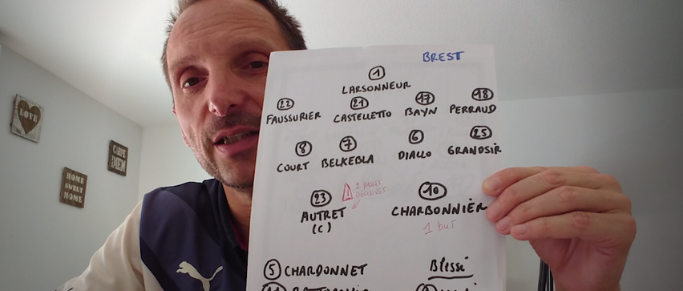 BREST
1
LARSONNEUR
22 21 17 18
FAUSSURIER CASTELLETTO BAYN PERRAUD
8 7 6 25
COURT BELKEBLA DIALLO GRANDSIR
23 10
AUTRET CHARBONNIER
(C) 1 BUT
5 CHARDONNET Blessé
LOVE
HOME
SWEET
HOME